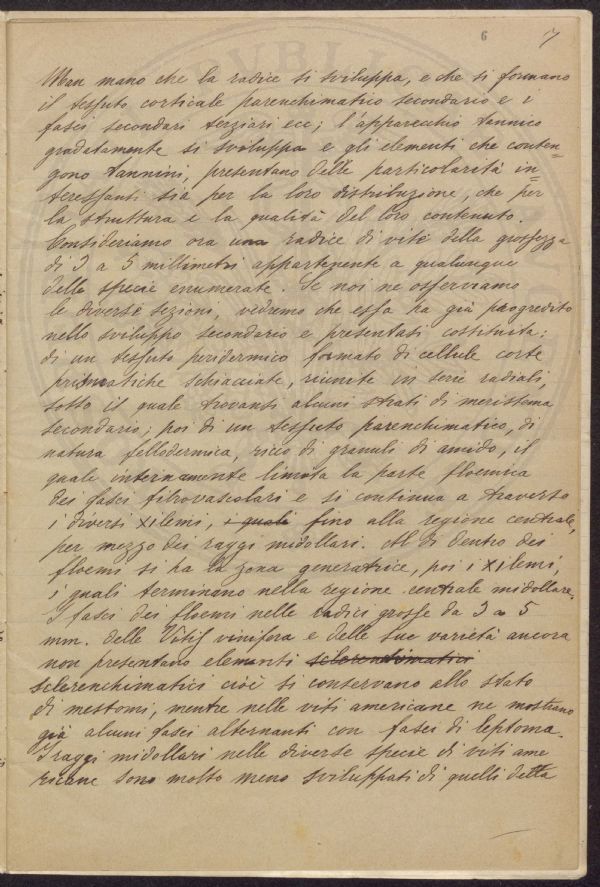 6 7
Man mano che la radice si sviluppa, e che si formano
il tessuto corticale parenchimatico secondario e i
fasci secondari terziari ecc; l'apparecchio tannico
gradatamente si sviluppa e gli elementi che conten=
gono tannini, presentano delle particolarità in=
teressanti sia per la loro distribuzione, che per
la struttura e la qualità del loro contenuto.
Consideriamo ora una radice di vite della grossezza
di 3 a 5 millimetri appartenente a qualunque
delle specie enumerate. Se noi ne osserviamo
le diverse sezioni, vedremo che essa ha già progredito
nello sviluppo secondario e presentasi costituita:
di un tessuto peridermico formato di cellule corte
prismatiche schiacciate, riunite in serie radiali,
sotto il quale trovansi alcuni strati di meristema
secondario; poi di un tessuto parenchimatico, di
natura fellodermica, ricco di granuli di amido, il
quale internamente limita la parte floemica
dei fasci fibrovascolari e si continua a traverso
i diversi xilemi, i quali fino alla regione centrale,
per mezzo dei raggi midollari. Al di dentro dei
floemi si ha la zona generatrice, poi i xilemi,
i quali terminano nella regione centrale midollare.
I fasci dei floemi nelle radici grosse da 3 a 5
mm. delle Vitis vinifera e delle sue varietà ancora
non presentano elementi sclerenchimatici
sclerenchimatici cioè si conservano allo stato
di mestomi, mentre nelle viti americane ne mostrano
già alcuni fasci alternanti con fasci di leptoma.
I raggi midollari nelle diverse specie di viti ame
ricane sono molto meno sviluppati di quelli della